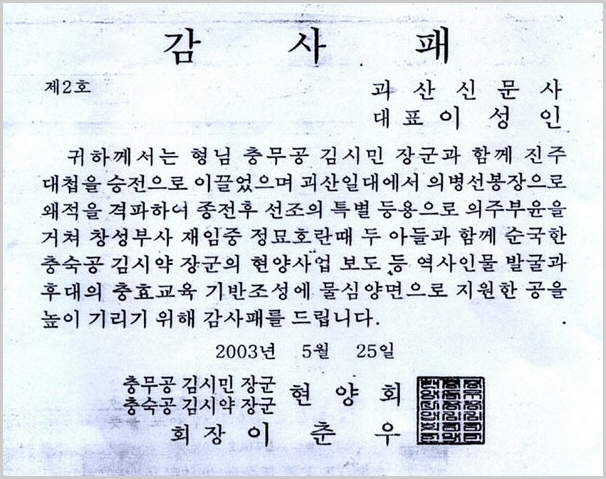 감 사 패
제2호
괴 산 신 문 사
대 표 이 성 인
귀하께서는 형님 충무공 김시민 장군과 함께 진주
대첩을 승전으로 이끌었으며 괴산일대에서 의병선봉장으로
왜적을 격파하여 종전후 선조의 특별 등용으로 의주부윤을
거쳐 창성부사 재임중 정묘호란때 두 아들과 함께 순국한
충숙공 김시약 장군의 현양사업 보도 등 역사인물 발굴과
후대의 충효교육 기반조성에 물심양면으로 지원한 공을
높이 기리기 위해 감사패를 드립니다.
2003년 5월 25일
충무공 김시민 장군
충숙공 김시약 장군
현 양 회
회 장 이 춘 우